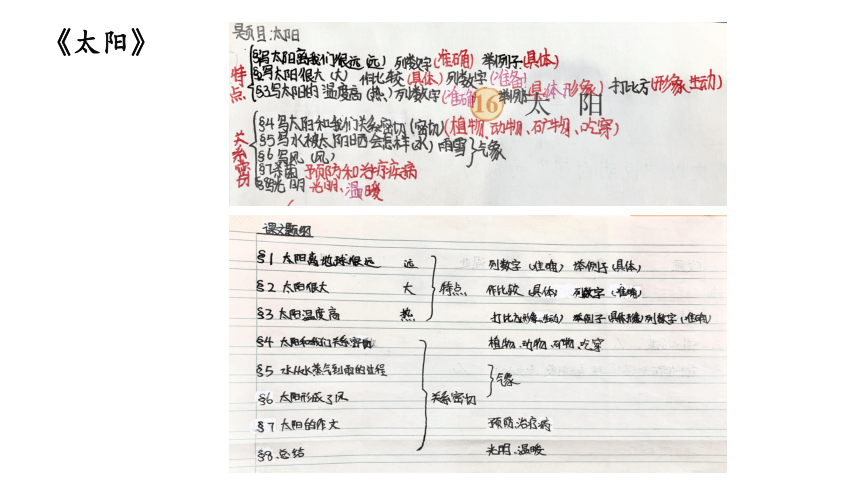 《太阳》
题目:太阳
§1写太阳离我们很远(远) 列数字(准确) 举例子(具体)
§2写太阳很大(大) 作比较(具体) 列数字(准备)
特点 §3写太阳的温度高(热) 列数字(准确 举例 (具体形象) 打比方(形象生动)
16 太 阳
§4写太阳和我们关系密切(密切)(植物、动物、矿物、吃穿)
§5写水被太阳晒会怎样(水) 雨雪 气象
关系密切 §6写风(风)
§7杀菌 预防和治疗疾病
§8光明 光明、温暖
课文题纲
§1 太阳离地球很远 远 列数字(准确) 举例子(具体)
§2 太阳很大 大 特点 作比较(具体) 列数字(准确)
§3 太阳温度高 热 打比方(形象、生动) 举例子(具体形象)列数字(准确)
§4 太阳和我们关系密切 植物、动物、矿物、吃穿
§5 水从水蒸气到雨的过程 气象
§6 太阳形成了风 关系密切
§7 太阳的作文 预防、治疗病
§8.总结 光明、温暖